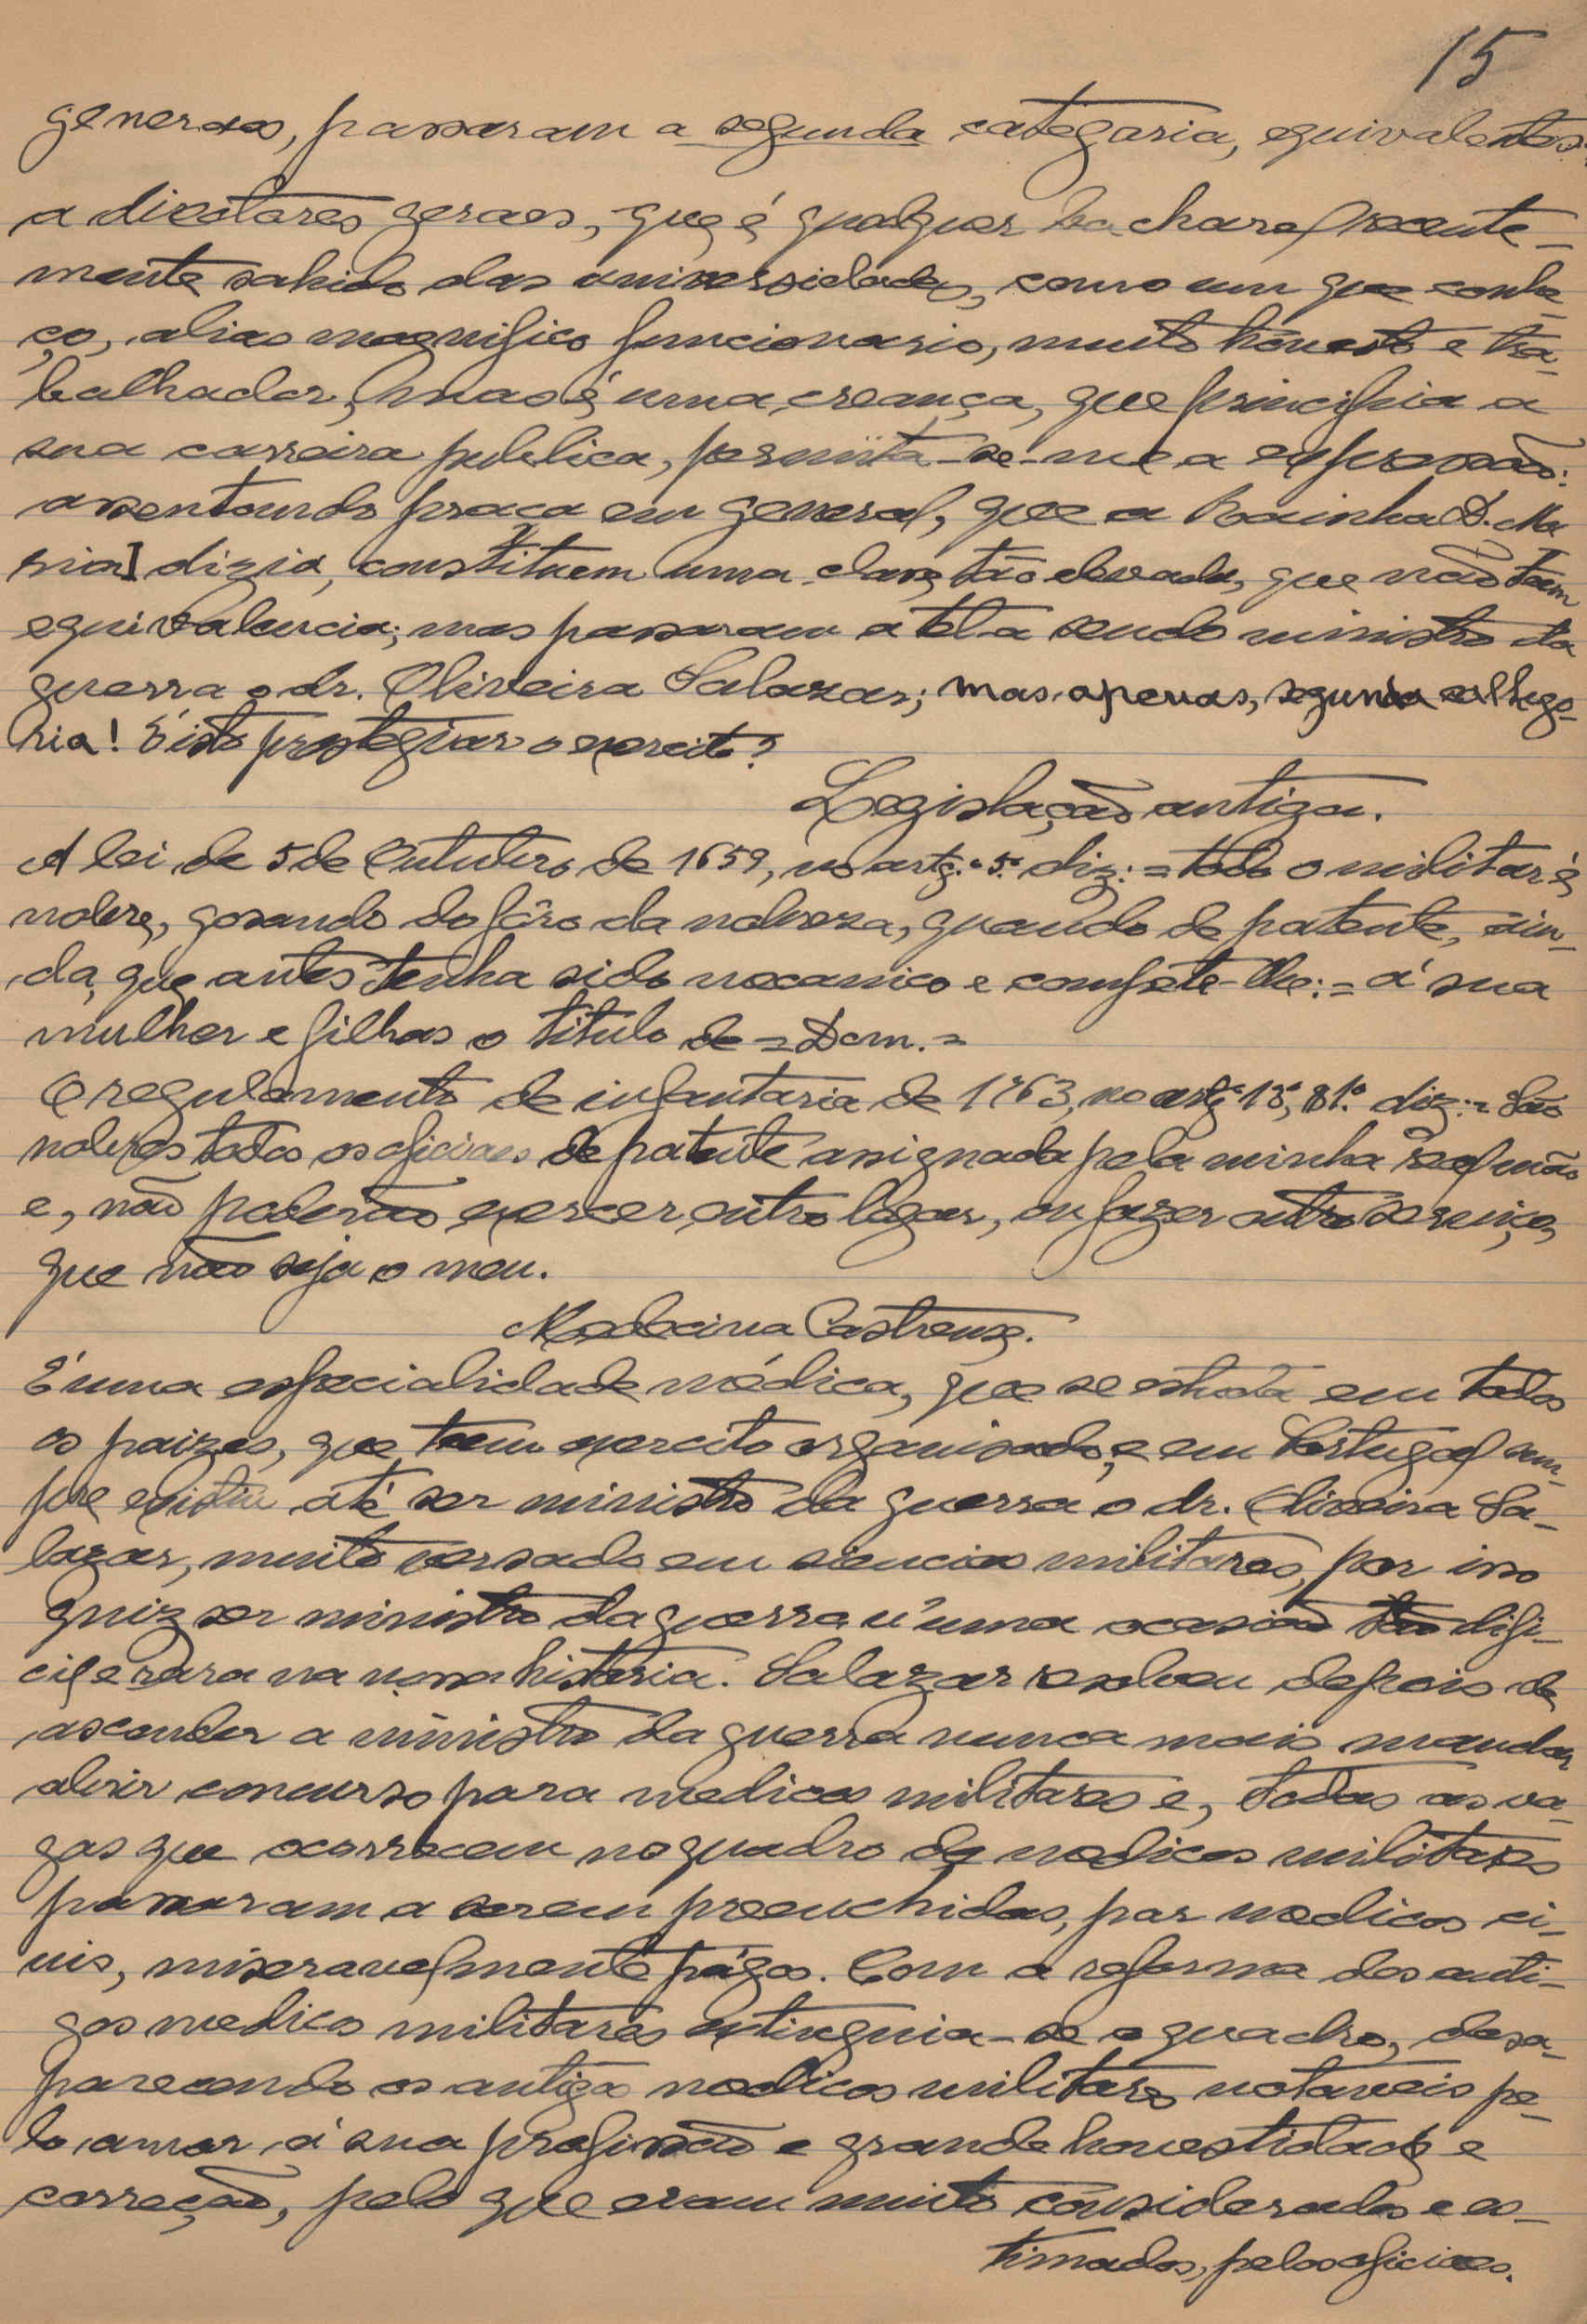 15
generaes, passaram a segunda categoria, equivalentes
a directores geraes, que é qualquer bacharel recente-
mente sahido das universidades, como um que conhe-
ço, alias magnifico funcionario, muito honesto e tra-
balhador, mas é uma creança, que principia a
sua carreira publica, permita-se-me a expressão:
assentando praça em general, que a Rainha D. Ma
ria I dizia, constituem uma classe tão elevada, que não teem
equivalencia; mas passaram a tel-a sendo ministro da
guerra o dr. Oliveira Salazar; mas, apenas, segunda cathego-
ria! E' isto prestegiar o exercito?
Legislação antiga.
A lei de 5 de Outubro de 1659, no artg.º 5.º diz: = todo o militar é
nobre, gosando do fôro da nobreza, quando de patente, ain-
da, que antes tenha sido mecanico e compete-lhe: = á sua
mulher e filhas o titulo de = Dom. =
O regulamento de infantaria de 1763, no artg.º 13º, § 1.º diz: = São
nobres todos os oficiaes de patente assignada pela minha real mão
e, não poderão exercer outro logar, ou fazer outro serviço,
que não seja o meu.
Medecina Castrense.
E' uma especialidade médica, que se estuda em todos
os paizes, que teem exercito organisado, e em Portugal sem-
pre existiu até ser ministro da guerra o dr. Oliveira Sa-
lazar, muito versado em siencias militares, por isso
quiz ser ministro da guerra n'uma ocasião tão difi-
cil e rara na nossa historia. Salazar resolveu depois de
ascender a ministro da guerra nunca mais mandar
abrir concurso para medicos militares e, todas as va-
gas que ocorrecem no quadro de medicos militares
passaram a serem preenchidas, por medicos ci-
vis, miseravelmente págos. Com a reforma dos anti-
gos medicos militares extinguia-se o quadro, desa-
parecendo os antigos medicos militares notaveis pe-
lo amor á sua profissão e grande honestidade e
correção, pelo que eram muito considerados e es-
timados, pelos oficiaes.